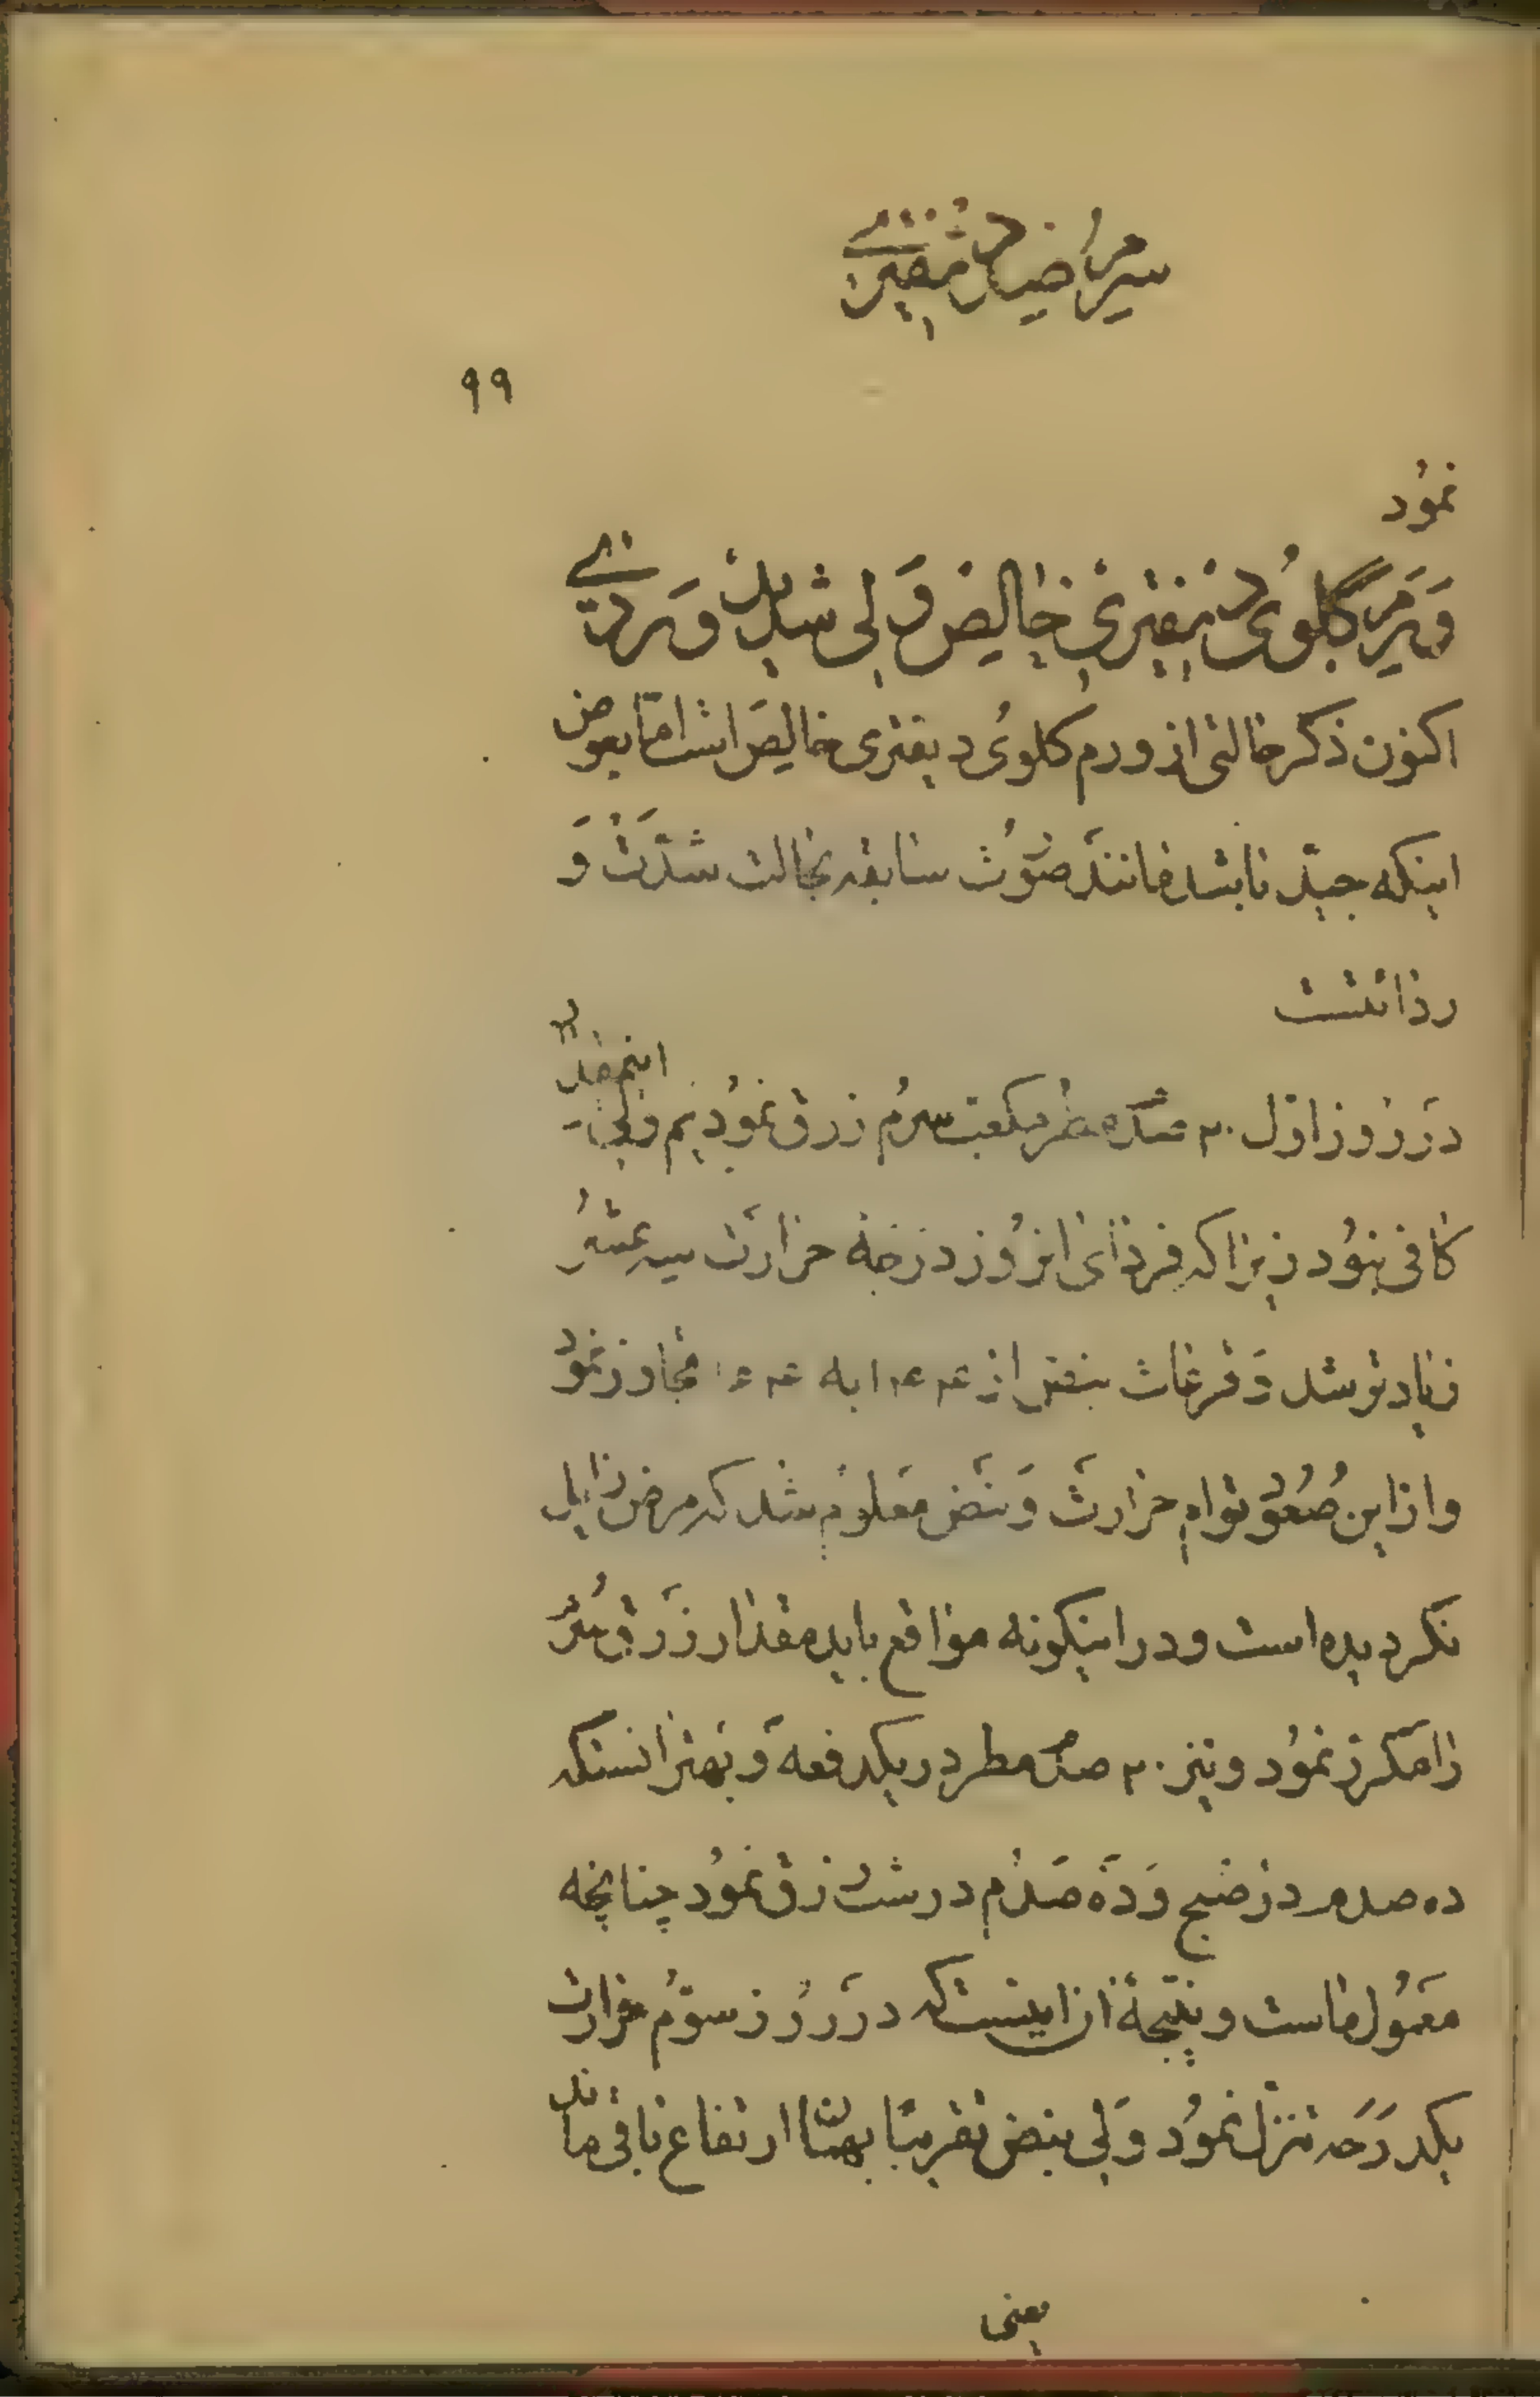 سرم ضد دیفتری
۹۹
نمود
ورم گلوی دیفتری خالص ولی شدید و ردی
اکنون ذکر حالتی از ورم گلوی دیفتری خالص است اما بعوض
اینکه جید باشد مانند صورت سابقه بحالت شدت و
رذائتست
در روز اول ۲۰ صدم مطر مکعب سرم زرق نمودیم ولی اینمقدار
کافی نبود زیرا که فردای انروز درجه حرارت سه عشر
زیادتر شد و قرعات نبض از ۱۲۴ به ۱۴۴ تجاوز نمود
و از این صعود توام حرارت و نبض معلوم شد که مرض زایل
نگردیده است و در اینگونه مواقع باید مقدار زرق سرم
را مکرر نمود و نیز ۲۰ صدم مطر در یکدفعه و بهتر انستکه
ده صدم در صبح و ده صدم در شب زرق نمود چنانچه
معمول ماست و نتیجهٔ ان اینست که در روز سوم حرارت
یکدرجه تنزل نمود ولی نبض تقریبا بهمان ارتفاع باقی ماند
یعنی